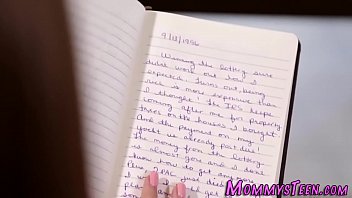 9/12/1956
Winning the lottery sure
didn't work out how I
expected! Turns out, being
rich is more expensive than
I thought! The IRS keeps
coming after me for property
taxes on the houses I bought
And the payment on my
yacht is already past due!
The money from the lottery
is almost gone and I don't
know how to get any
Plus,
I
MommysTeen.com